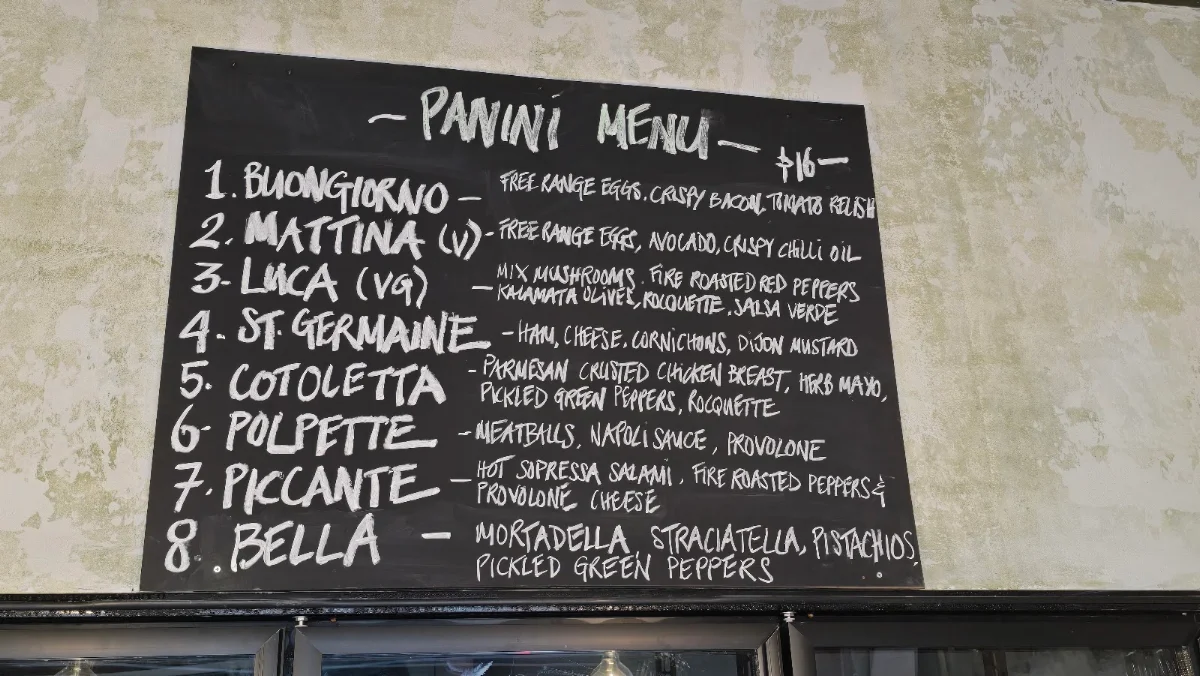 - PANINI MENU -
$16-
1. BUONGIORNO - FREE RANGE EGGS, CRISPY BACON, TOMATO RELISH
2. MATTINA (V) - FREE RANGE EGGS, AVOCADO, CRISPY CHILLI OIL
3- LUCA (VG) - MIX MUSHROOMS, FIRE ROASTED RED PEPPERS
KALAMATA OLIVES, ROCQUETTE, SALSA VERDE
4. ST. GERMAINE - HAM, CHEESE, CORNICHONS, DIJON MUSTARD
5. COTOLETTA - PARMESAN CRUSTED CHICKEN BREAST, HERB MAYO,
PICKLED GREEN PEPPERS, ROCQUETTE
6- POLPETTE - MEATBALLS, NAPOLI SAUCE, PROVOLONE
7. PICCANTE - HOT SOPRESSA SALAMI, FIRE ROASTED PEPPERS &
PROVOLONE CHEESE
8. BELLA - MORTADELLA, STRACIATELLA, PISTACHIOS,
PICKLED GREEN PEPPERS